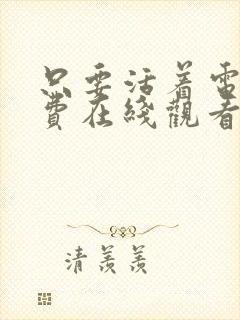 只要活着電
費在綫觀看
清羨羨